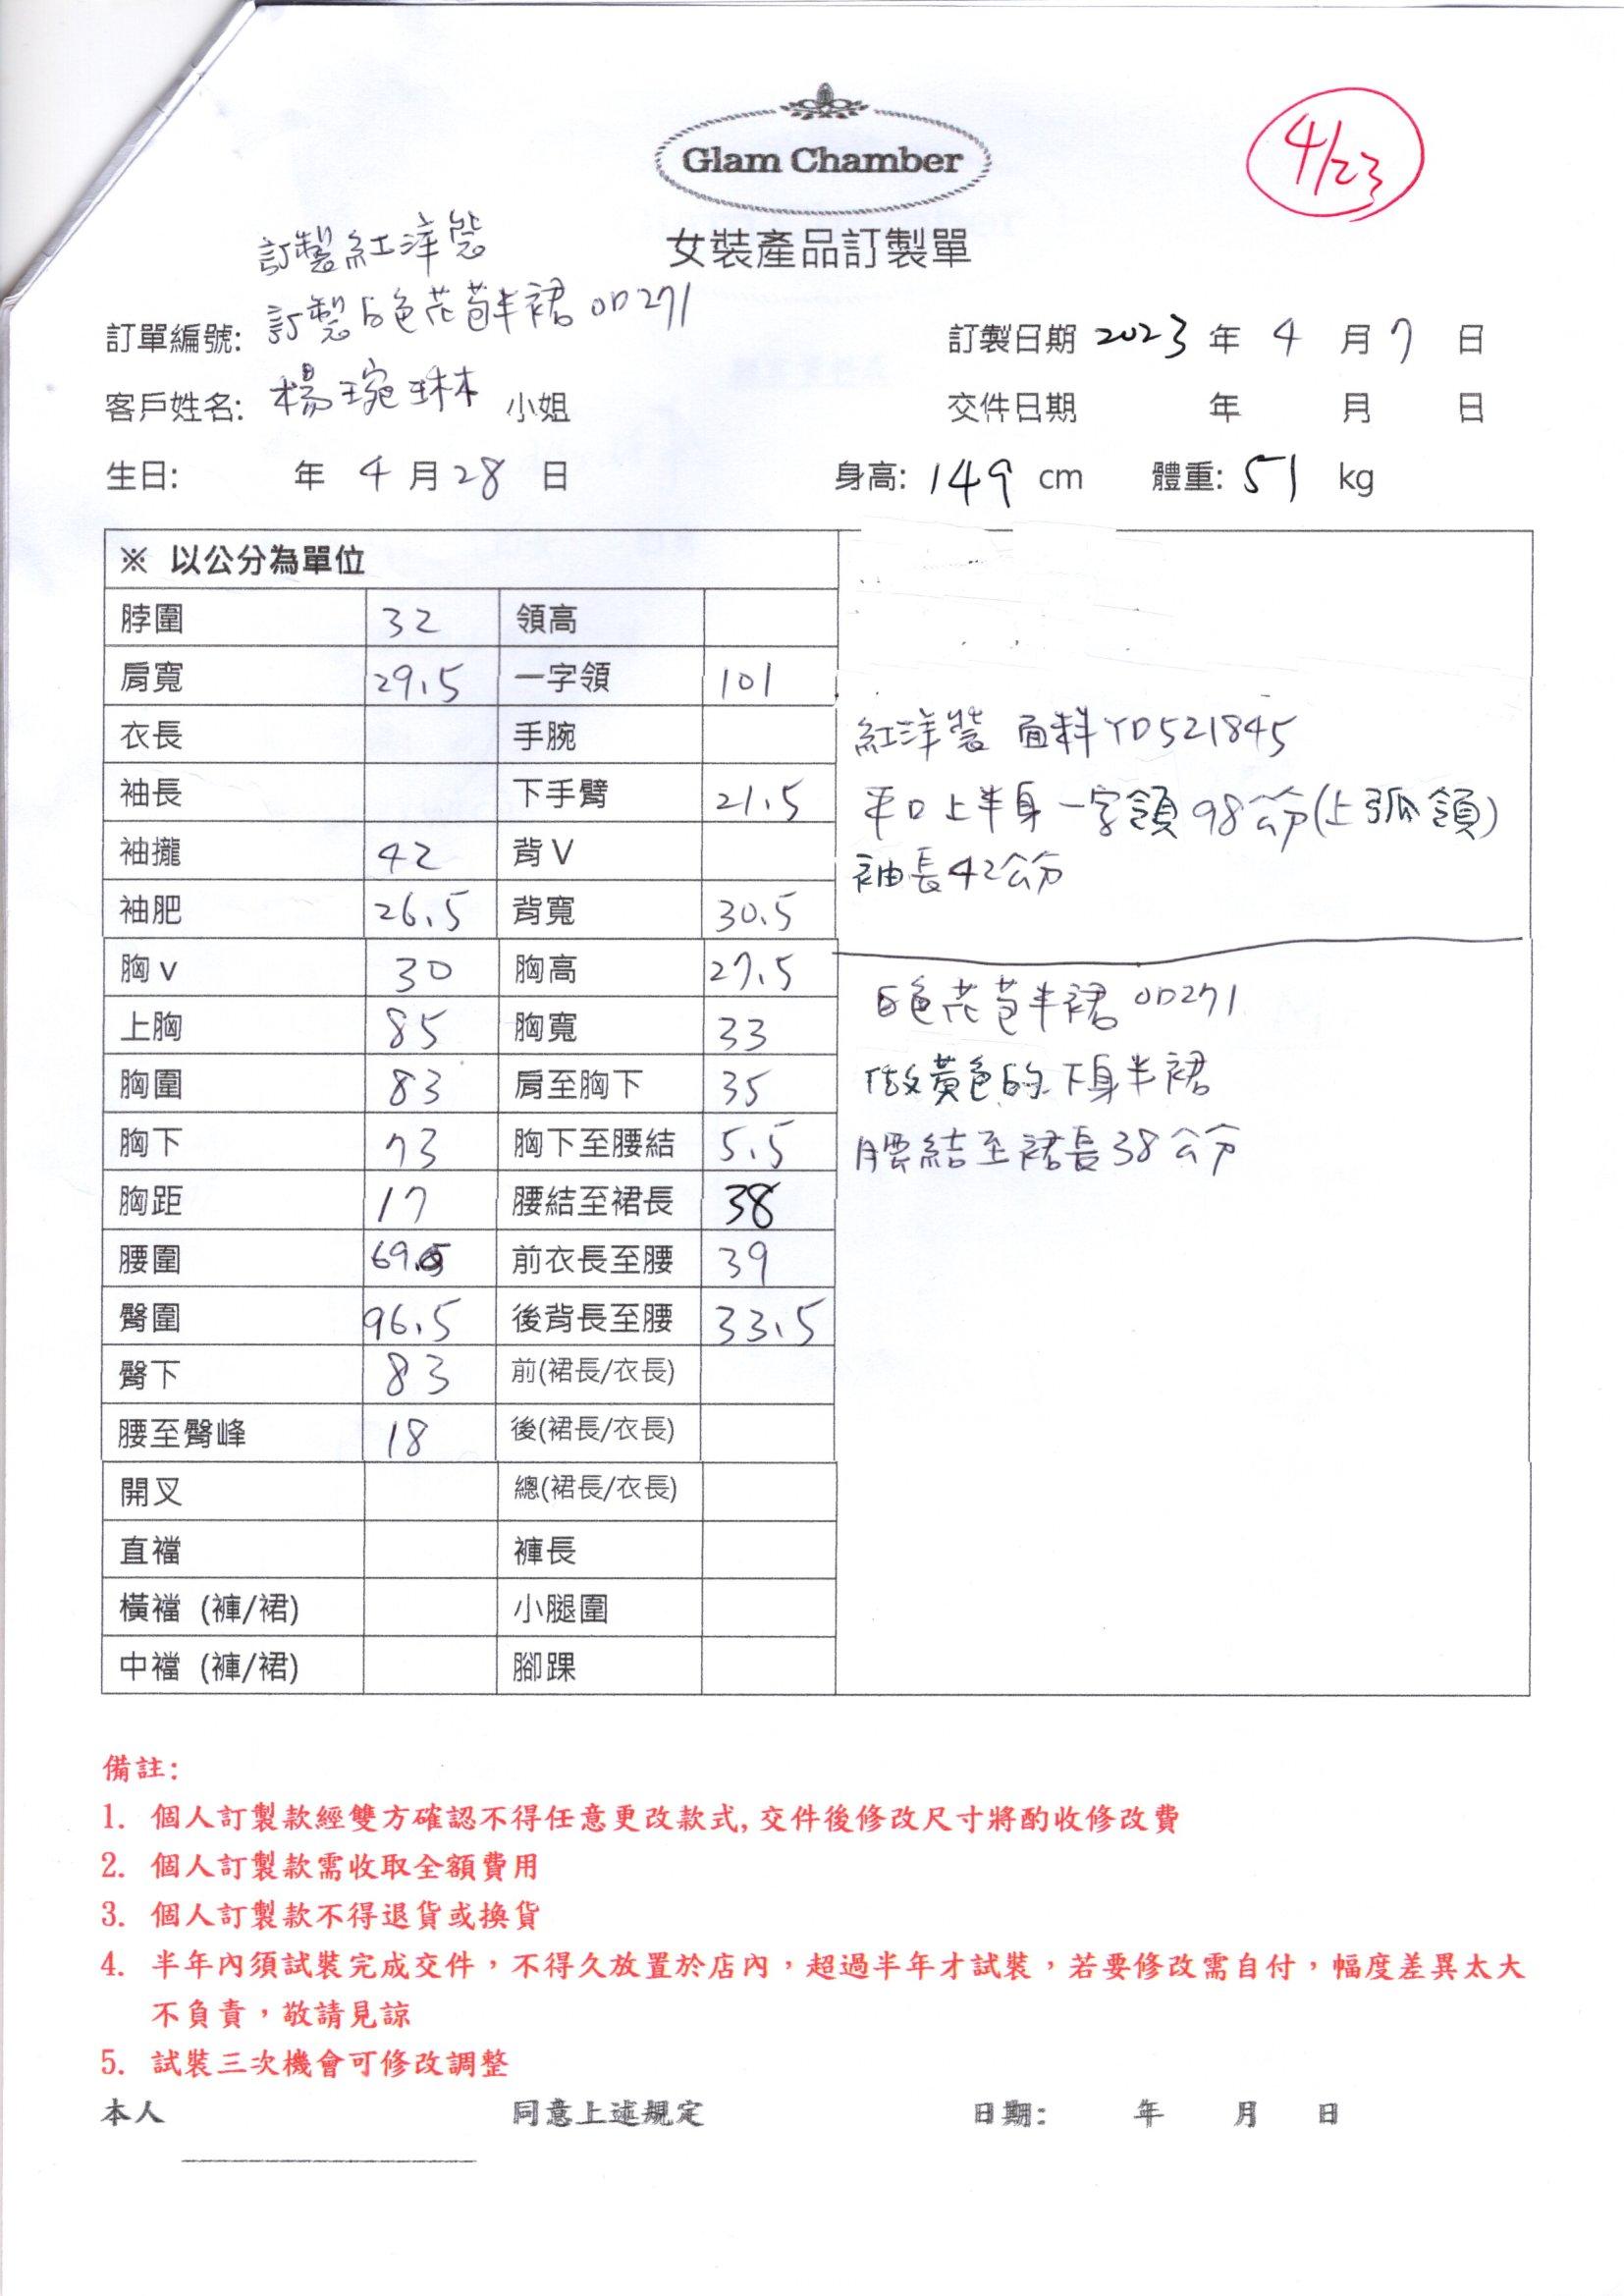 Glam Chamber
4/23
女裝產品訂製單
訂製紅洋裝
訂製白色花苞半裙OD271
訂單編號:
訂製日期 2023 年 4 月 7 日
客戶姓名: 楊琬琳 小姐
交件日期 年 月 日
生日: 年 4 月 28 日 身高: 149 cm 體重: 51 kg
※ 以公分為單位
脖圍 32 領高
肩寬 29.5 一字領 101
衣長 手腕
袖長 下手臂 21.5
袖攏 42 背V
袖肥 26.5 背寬 30.5
胸v 30 胸高 27.5
上胸 85 胸寬 33
胸圍 83 肩至胸下 35
胸下 73 胸下至腰結 5.5
胸距 17 腰結至裙長 38
腰圍 69.5 前衣長至腰 39
臀圍 96.5 後背長至腰 33.5
臀下 83 前(裙長/衣長)
腰至臀峰 18 後(裙長/衣長)
開叉 總(裙長/衣長)
直襠 褲長
橫襠 (褲/裙) 小腿圍
中襠 (褲/裙) 腳踝
紅洋裝 面料YD521845
平口上半身一字領98公分(上弧領)
袖長42公分
白色花苞半裙OD271
做黃色的下身半裙
腰結至裙長38公分
備註:
1. 個人訂製款經雙方確認不得任意更改款式,交件後修改尺寸將酌收修改費
2. 個人訂製款需收取全額費用
3. 個人訂製款不得退貨或換貨
4. 半年內須試裝完成交件，不得久放置於店內，超過半年才試裝，若要修改需自付，幅度差異太大
不負責，敬請見諒
5. 試裝三次機會可修改調整
本人 同意上述規定 日期: 年 月 日